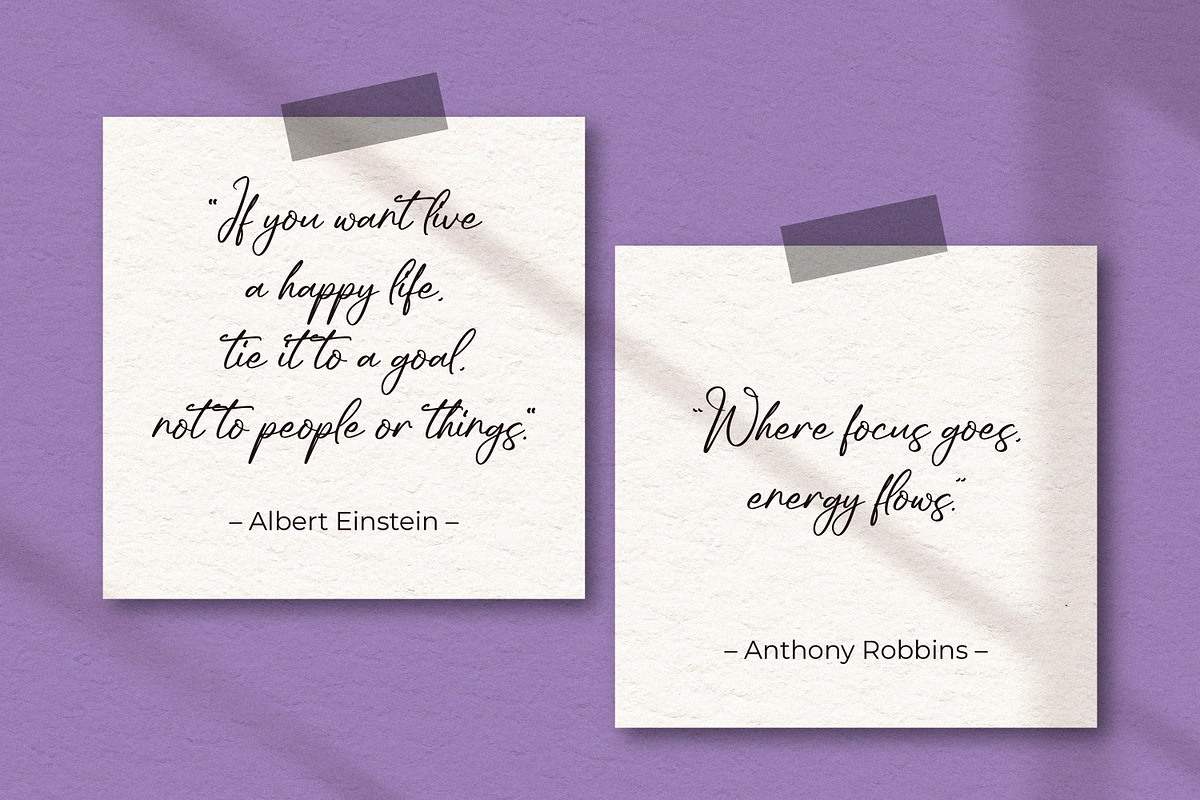 “If you want live
a happy life,
tie it to a goal,
not to people or things.“
– Albert Einstein –
“Where focus goes,
energy flows.”
– Anthony Robbins –